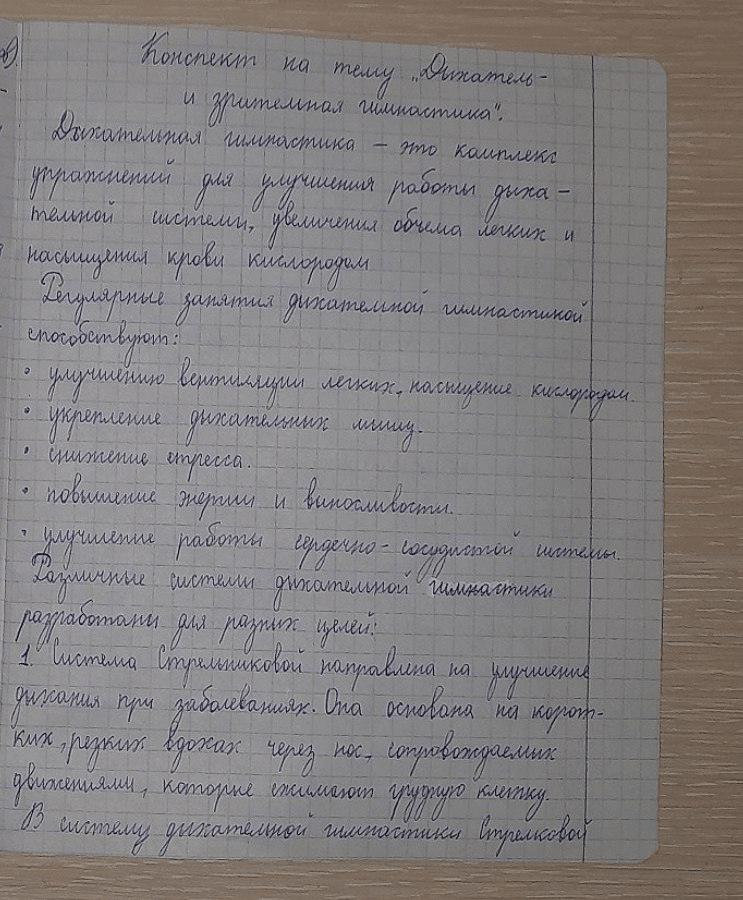 Конспект на тему „Дыхатель-
и зрительная гимнастика".
Дыхательная гимнастика – это комплекс
упражнений для улучшения работы дыха-
тельной системы, увеличения объема легких и
насыщения крови кислородом
Регулярные занятия дыхательной гимнастикой
способствуют:
• улучшению вентиляции легких, насыщение кислородом.
• укрепление дыхательных мышц.
• снижение стресса.
• повышение энергии и выносливости.
• улучшение работы сердечно-сосудистой системы.
Различные системы дыхательной гимнастики
разработаны для разных целей:
1. Система Стрельниковой направлена на улучшение
дыхания при заболеваниях. Она основана на корот-
ких, резких вдохах через нос, сопровождаемых
движениями, которые сжимают грудную клетку.
В систему дыхательной гимнастики Стрелковой